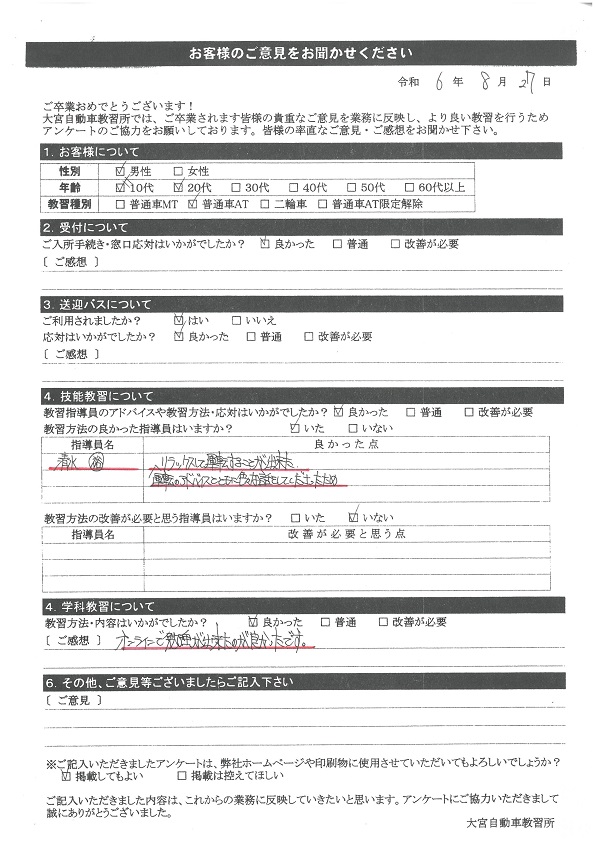 お客様のご意見をお聞かせください
令和 6 年 8 月 27 日
ご卒業おめでとうございます！
大宮自動車教習所では、ご卒業されます皆様の貴重なご意見を業務に反映し、より良い教習を行うため
アンケートのご協力をお願いしております。皆様の率直なご意見・ご感想をお聞かせ下さい。
1. お客様について
性別 ☑男性 □女性
年齢 ☑10代 ☑20代 □30代 □40代 □50代 □60代以上
教習種別 □普通車MT ☑普通車AT □二輪車 □普通車AT限定解除
2. 受付について
ご入所手続き・窓口応対はいかがでしたか？ ☑良かった □普通 □改善が必要
〔 ご感想 〕
3. 送迎バスについて
ご利用されましたか？ ☑はい □いいえ
応対はいかがでしたか？ ☑良かった □普通 □改善が必要
〔 ご感想 〕
4. 技能教習について
教習指導員のアドバイスや教習方法・応対はいかがでしたか？ ☑良かった □普通 □改善が必要
教習方法の良かった指導員はいますか？ ☑いた □いない
指導員名 良かった点
清水 リラックスして運転することが出来た
運転のアドバイスとともに色々な話をしてくださったため
教習方法の改善が必要と思う指導員はいますか？ □いた ☑いない
指導員名 改善が必要と思う点
4. 学科教習について
教習方法・内容はいかがでしたか？ ☑良かった □普通 □改善が必要
〔 ご感想 〕 オンラインで勉強が出来たのが良かったです。
6. その他、ご意見等ございましたらご記入下さい
〔 ご意見 〕
※ご記入いただきましたアンケートは、弊社ホームページや印刷物に使用させていただいてもよろしいでしょうか？
☑掲載してもよい □掲載は控えてほしい
ご記入いただきました内容は、これからの業務に反映していきたいと思います。アンケートにご協力いただきまして
誠にありがとうございました。
大宮自動車教習所